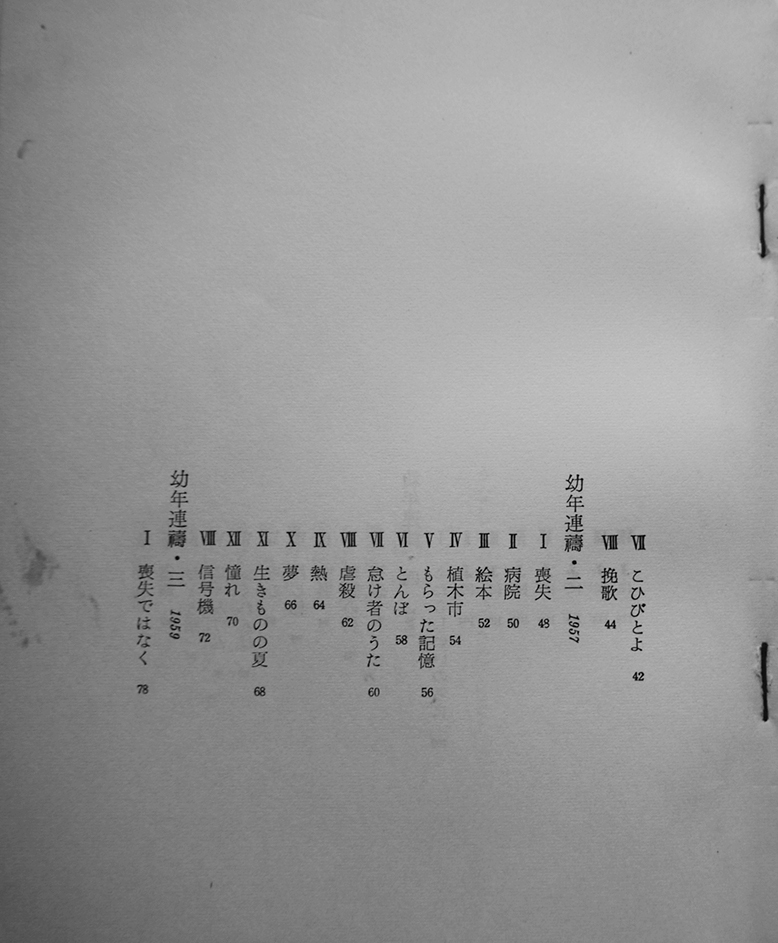 Ⅶ こひびとよ 42
Ⅷ 挽歌 44
幼年連禱・二 1957
Ⅰ 喪失 48
Ⅱ 病院 50
Ⅲ 絵本 52
Ⅳ 植木市 54
Ⅴ もらった記憶 56
Ⅵ とんぼ 58
Ⅶ 怠け者のうた 60
Ⅷ 虐殺 62
Ⅸ 熱 64
Ⅹ 夢 66
Ⅺ 生きものの夏 68
Ⅻ 憧れ 70
Ⅷ 信号機 72
幼年連禱・三 1959
Ⅰ 喪失ではなく 78